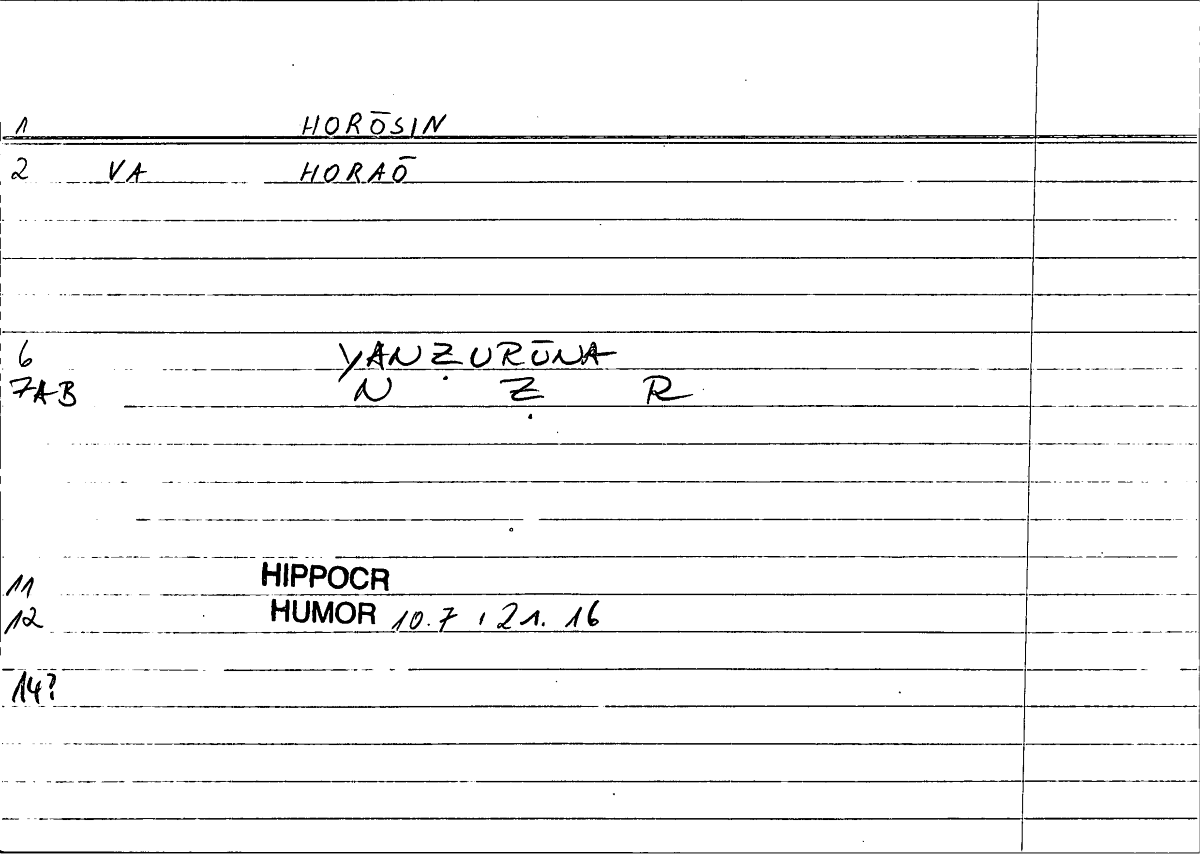 1 HORŌSIN
2 VA HORAŌ
6 YANẒURŪNA
7AB N Ẓ R
11 HIPPOCR
12 HUMOR 10.7 , 21. 16
14?